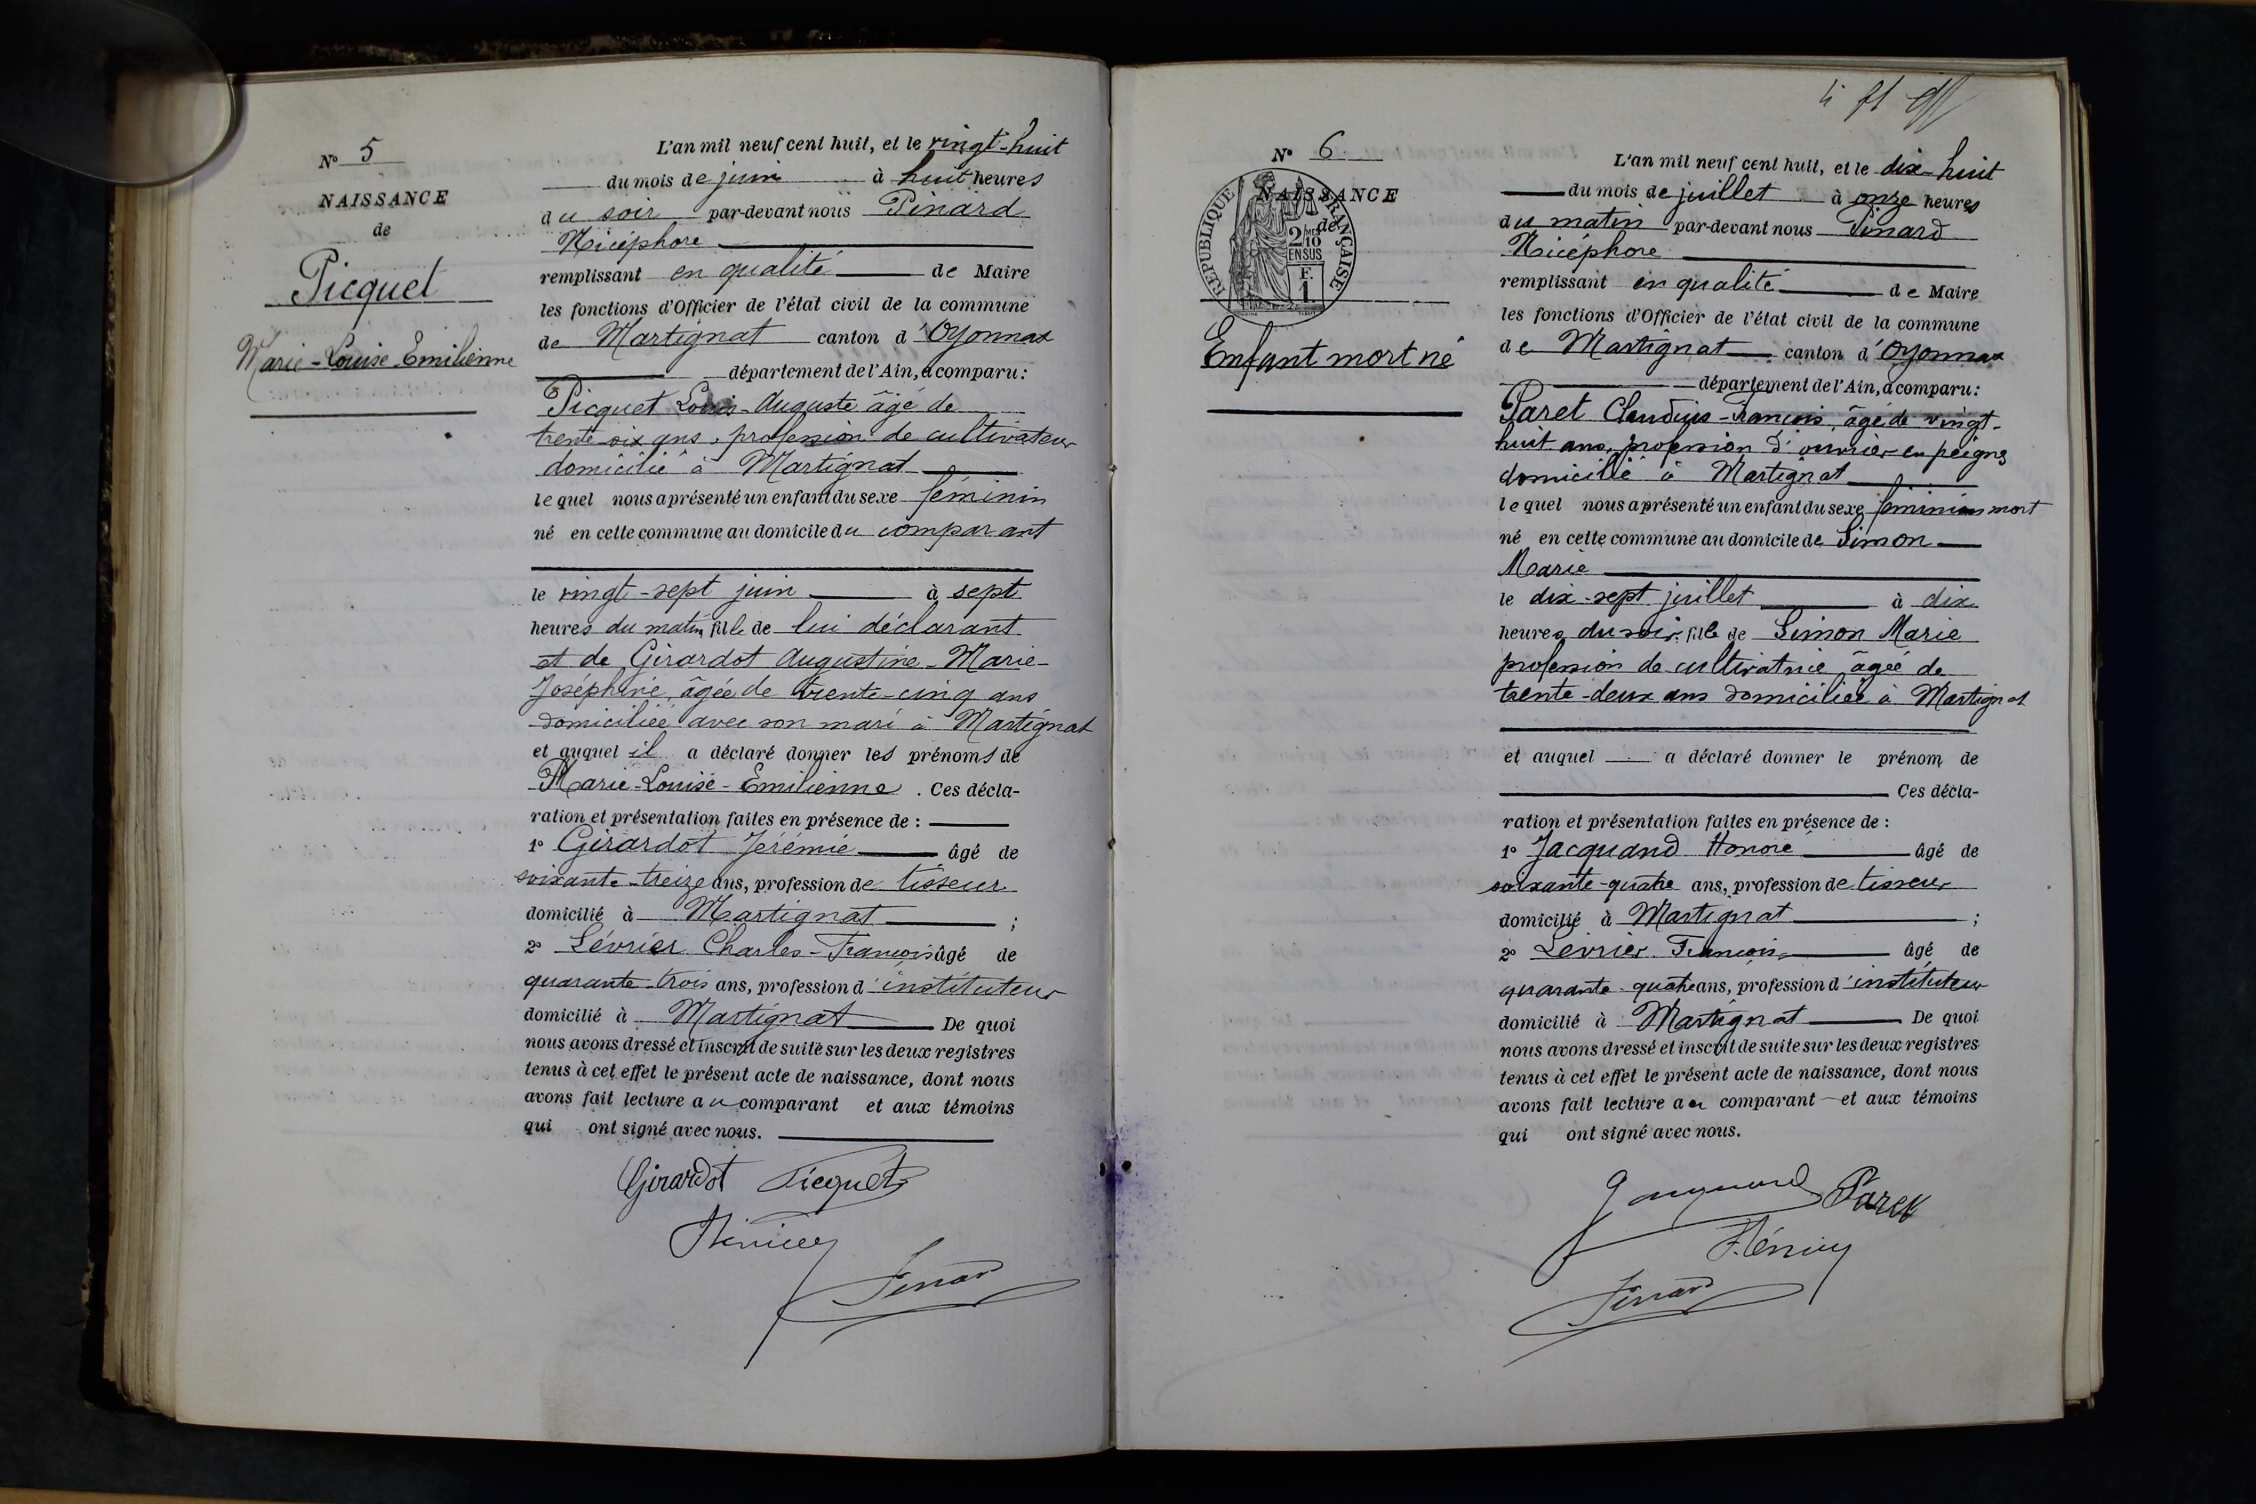 N° 5
NAISSANCE
de
Picquet
Marie-Louise-Emilienne
L'an mil neuf cent huit, et le vingt-huit
du mois de juin à huit heures
du soir par-devant nous Pinard
Nicéphore
remplissant en qualité de Maire
les fonctions d'Officier de l'état civil de la commune
de Martignat canton d'Oyonnax
département de l'Ain, a comparu :
Picquet Louis-Auguste âgé de
trente-six ans, profession de cultivateur
domicilié à Martignat
lequel nous a présenté un enfant du sexe féminin
né en cette commune au domicile du comparant
le vingt-sept juin à sept
heures du matin fille de lui déclarant
et de Girardot Augustine-Marie-
Joséphine, âgée de trente-cinq ans
domiciliée avec son mari à Martignat
et auquel il a déclaré donner les prénoms de
Marie-Louise-Emilienne . Ces décla-
ration et présentation faites en présence de :
1° Girardot Jérémie âgé de
soixante-treize ans, profession de tisseur
domicilié à Martignat ;
2° Lévrier Charles-François âgé de
quarante-trois ans, profession d'instituteur
domicilié à Martignat De quoi
nous avons dressé et inscrit de suite sur les deux registres
tenus à cet effet le présent acte de naissance, dont nous
avons fait lecture au comparant et aux témoins
qui ont signé avec nous.
Girardot Picquet
Pinard
N° 6
NAISSANCE
de
RÉPUBLIQUE FRANÇAISE
2/10
EN SUS
F.
1
Enfant mort né
L'an mil neuf cent huit, et le dix-huit
du mois de juillet à onze heures
du matin par-devant nous Pinard
Nicéphore
remplissant en qualité de Maire
les fonctions d'Officier de l'état civil de la commune
de Martignat canton d'Oyonnax
département de l'Ain, a comparu :
Paret Claudius-François, âgé de vingt-
huit ans, profession d'ouvrier en peignes
domicilié à Martignat
lequel nous a présenté un enfant du sexe féminin mort
né en cette commune au domicile de Simon
Marie
le dix-sept juillet à dix
heures du soir fille de Simon Marie
profession de cultivatrice âgée de
trente-deux ans domiciliée à Martignat
et auquel a déclaré donner le prénom de
Ces décla-
ration et présentation faites en présence de :
1° Jacquand Honoré âgé de
soixante-quatre ans, profession de tisseur
domicilié à Martignat ;
2° Lévrier François âgé de
quarante-quatre ans, profession d'instituteur
domicilié à Martignat De quoi
nous avons dressé et inscrit de suite sur les deux registres
tenus à cet effet le présent acte de naissance, dont nous
avons fait lecture au comparant et aux témoins
qui ont signé avec nous.
Jacquand Paret
Pinard